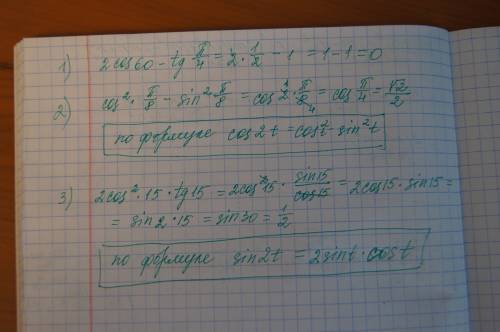 1) 2cos60 - tg π/4 = 2 · 1/2 - 1 = 1 - 1 = 0
2) cos² · π/8 - sin² π/8 = cos 2 · π/8 4 = cos π/4 = √2/2
по формуле cos2t = cos²t - sin²t
3) 2cos² · 15 · tg15 = 2cos²15 · sin15/cos15 = 2cos15 · sin15 =
= sin2 · 15 = sin30 = 1/2
по формуле sin2t = 2sint · cost